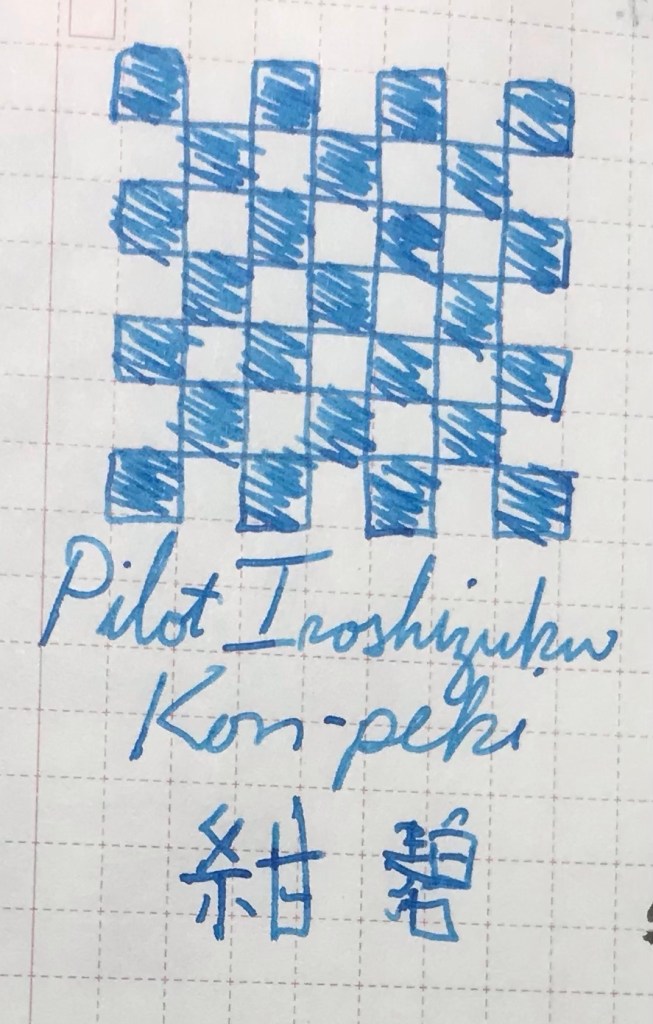 Pilot Iroshizuku
Kon-peki
紺碧